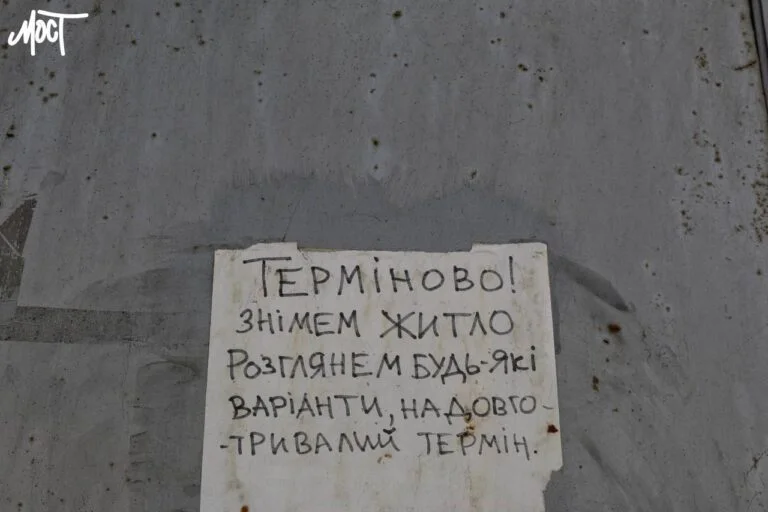 Мост
ТЕРМІНОВО!
ЗНІМЕМ ЖИТЛО
РОЗГЛЯНЕМ БУДЬ-ЯКІ
ВАРІАНТИ, НА ДОВГО-
-ТРИВАЛИЙ ТЕРМІН.